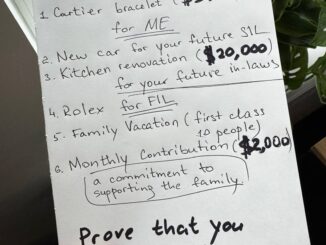 1. Cartier bracelet ($
for ME
2. New car for your future SIL
3. Kitchen renovation ($20,000)
for your future in-laws
4. Rolex for FIL
5. Family Vacation (first class
10 people)
6. Monthly Contribution ($2,000)
a commitment to
supporting the family
Prove that you